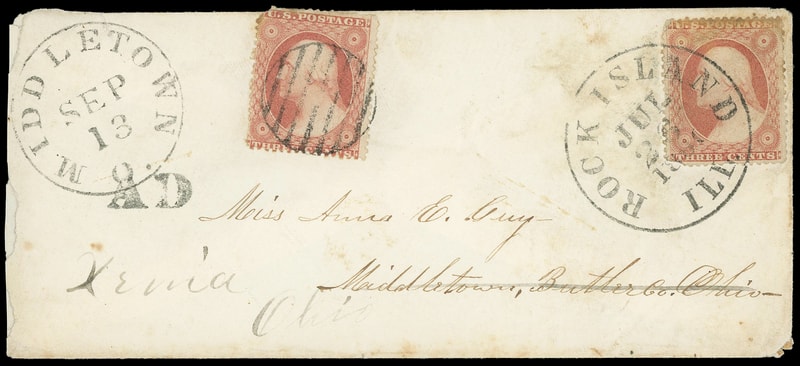 MIDDLETOWN O.
SEP
13
AD
U.S. POSTAGE
THREE CENTS
U.S. POSTAGE
THREE CENTS
ROCK ISLAND ILL
JUL
Miss Anna E. Guy
Middletown, Butler Co. Ohio
Xenia
Ohio